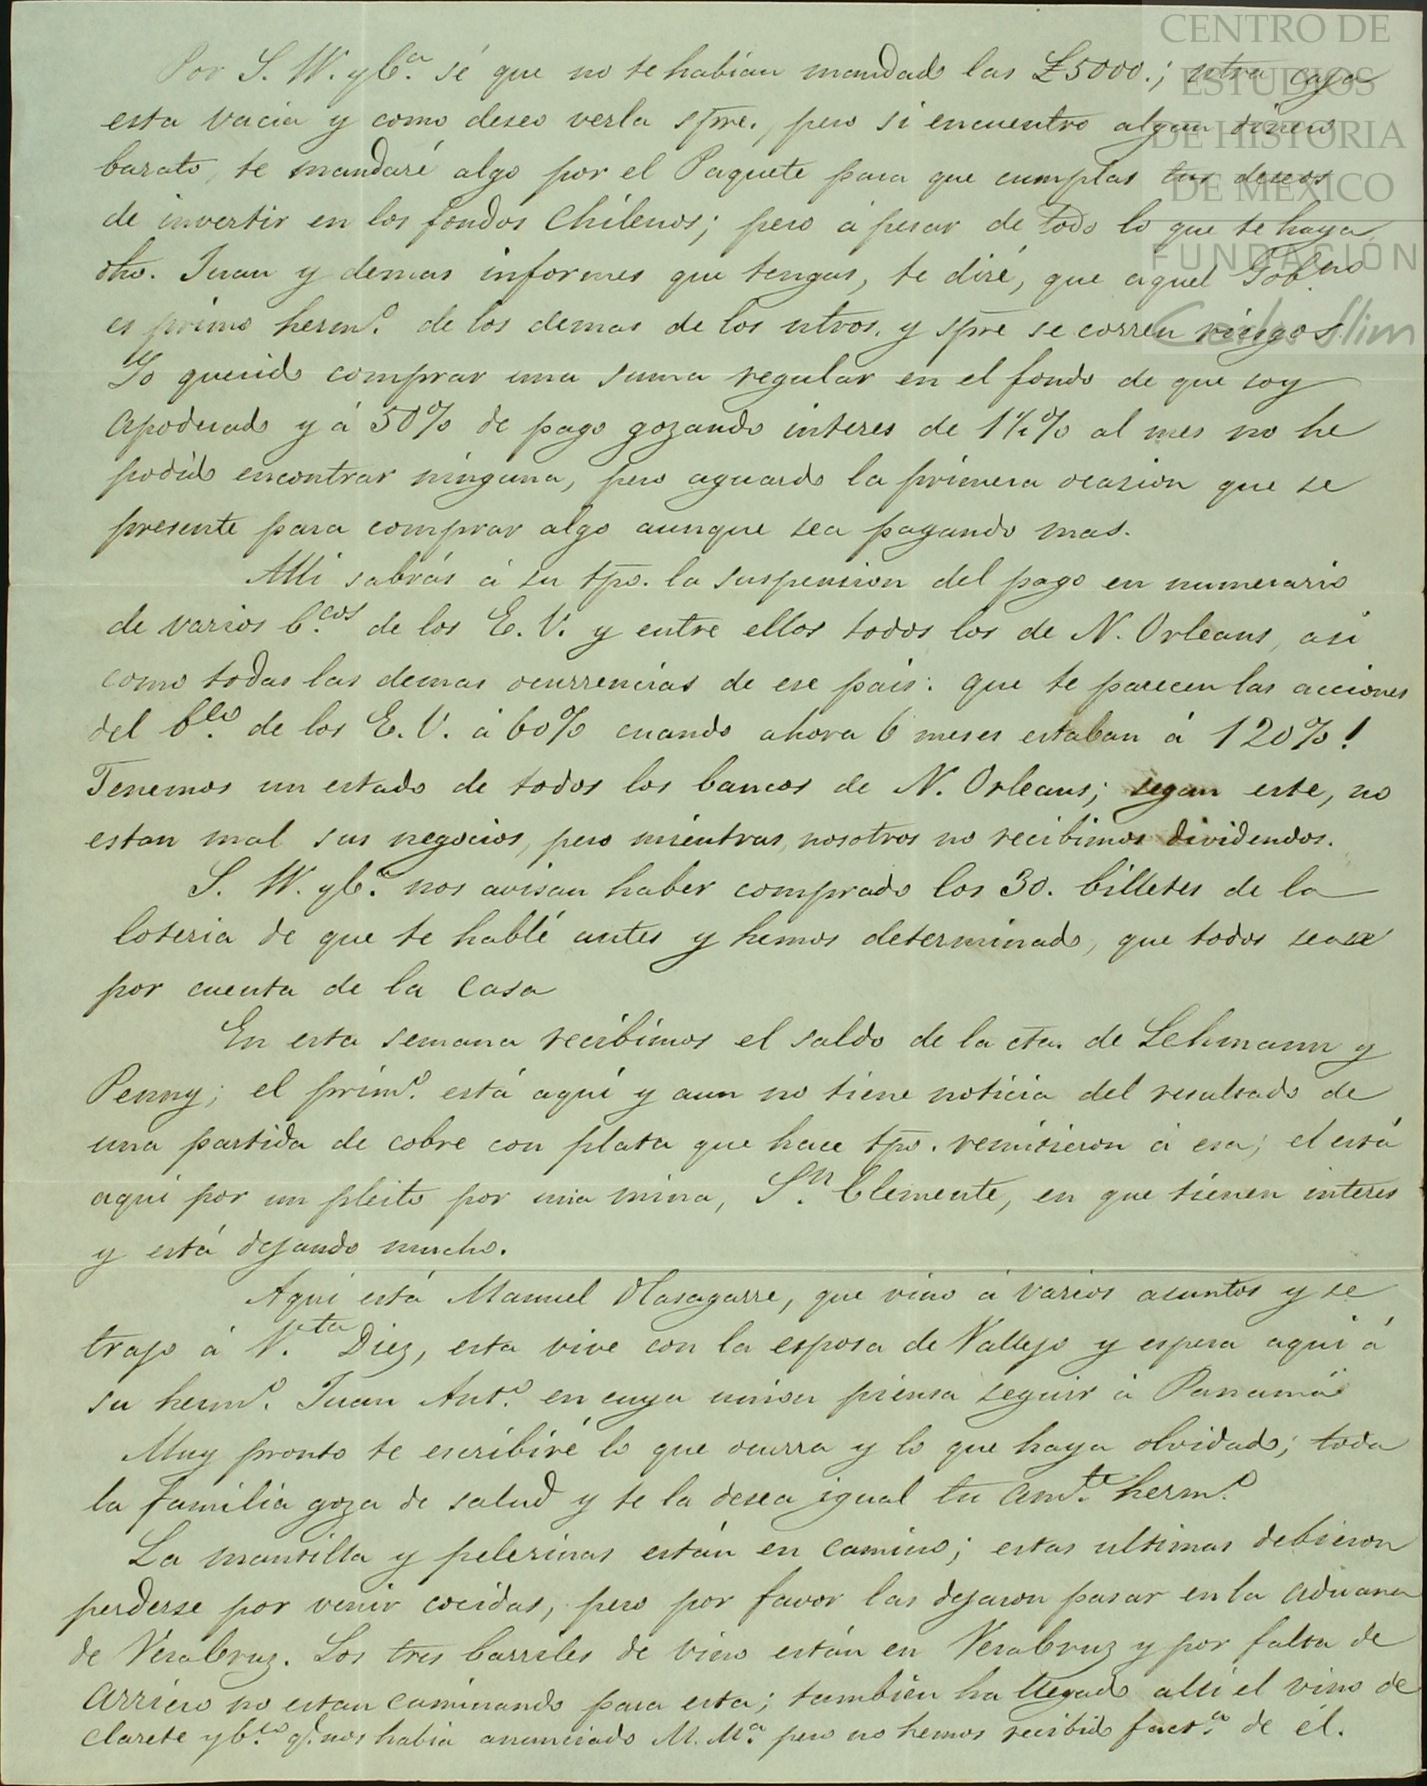 CENTRO DE
ESTUDIOS
DE HISTORIA
DE MÉXICO
FUNDACIÓN
Carlos Slim
Por S. W. y Cª. sé que no te habian mandado las £5000.; ntra caja
esta vacia y como deseo verla spre., pero si encuentro algun dinero
barato, te mandaré algo por el Paquete para que cumplas tus deseos
de invertir en los fondos Chilenos; pero á pesar de todo lo que te haya
dho. Juan y demas informes que tengas, te diré, que aquel Gobno
es primo hermº. de los demas de los ntros. y spre se corren riesgos.
Yo querido comprar una suma regular en el fondo de que soy
apoderado y á 50% de pago gozando interes de 1½% al mes no he
podido encontrar ninguna, pero aguardo la primera ocasion que se
presente para comprar algo aunque sea pagando mas.
Alli sabrás á su tpo. la suspension del pago en numerario
de varios bcos de los E. U. y entre ellos todos los de N. Orleans, asi
como todas las demas ocurrencias de ese pais: que te parecen las acciones
del bco. de los E. U. á 60% cuando ahora 6 meses estaban á 120%!
Tenemos un estado de todos los bancos de N. Orleans; segun este, no
estan mal sus negocios, pero mientras, nosotros no recibimos dividendos.
S. W. y Cª. nos avisan haber comprado los 30. billetes de la
loteria de que te hablé antes y hemos determinado, que todos sean
por cuenta de la casa
En esta semana recibimos el saldo de la cta. de Lehmann y
Penny; el primº. está aqui y aun no tiene noticia del resultado de
una partida de cobre con plata que hace tpo. remitieron á esa; el está
aqui por un pleito por una mina, Sn. Clemente, en que tienen interes
y está dejando mucho.
Aqui está Manuel Olasagarre, que vino á varios asuntos y se
trajo á V.ta Diez, esta vive con la esposa de Vallejo y espera aqui á
su hermº. Juan Antº. en cuya union piensa seguir á Panamá
Muy pronto te escribiré lo que ocurra y lo que haya olvidado; toda
la familia goza de salud y te la desea igual tu amte. hermº.
La mantilla y pelerinas están en camino; estas ultimas debieron
perderse por venir cocidas, pero por favor las dejaron pasar en la aduana
de VeraCruz. Los tres barriles de vino están en VeraCruz y por falta de
arriero no estan caminando para esta; tambien ha llegado alli el vino de
Clarete y bco. q. nos habia anunciado M. Mª. pero no hemos recibido factª. de él.